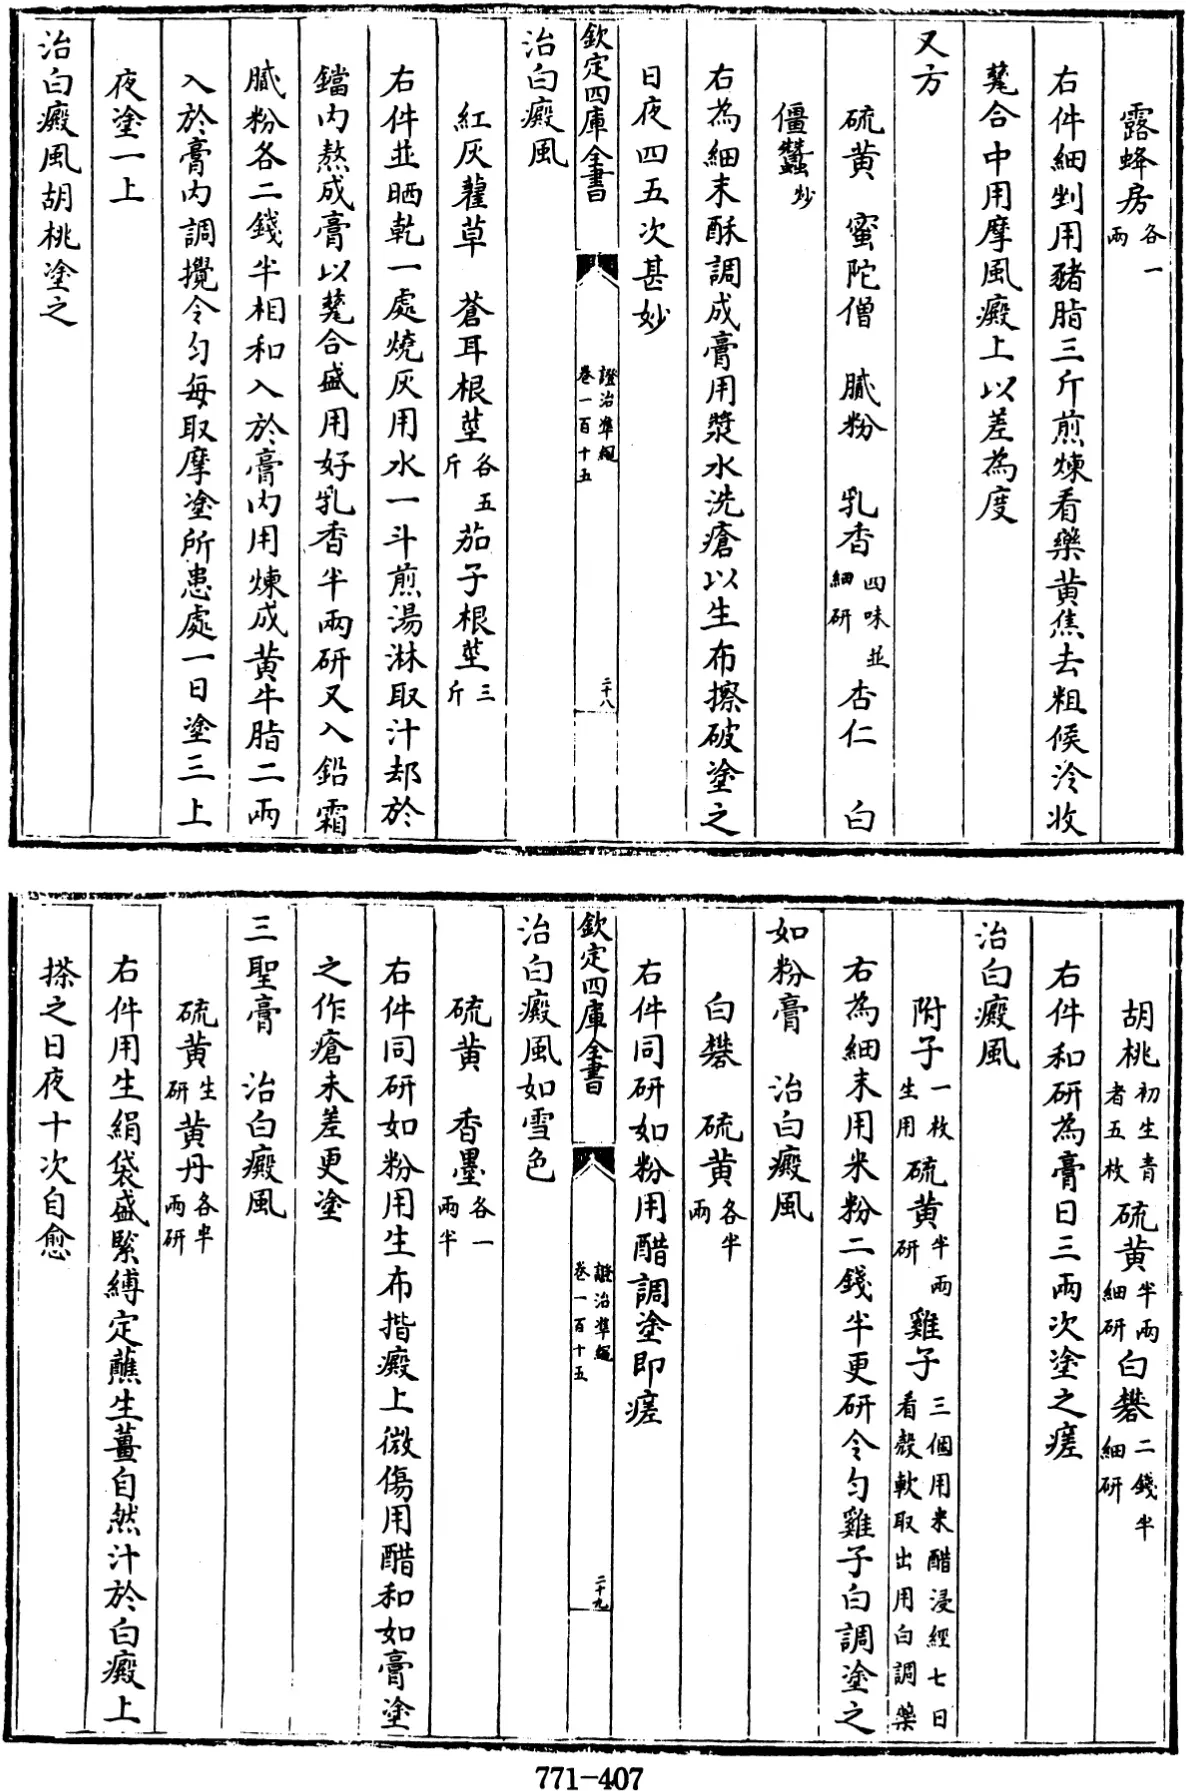 露蜂房各一兩
右件細剉用豬脂三斤煎煉看藥黄焦去粗候冷收
甆合中用摩風癜上以差為度
又方
硫黄 蜜陀僧 膩粉 乳香四味並細研 杏仁 白
僵蠶炒
右為細末酥調成膏用漿水洗瘡以生布擦破塗之
日夜四五次甚妙
欽定四庫全書 證治準繩 卷一百十五 二十八
治白癜風
紅灰藋草 蒼耳根莖各五斤 茄子根莖三斤
右件並晒乾一處燒灰用水一斗煎湯淋取汁却於
鐺内熬成膏以甆合盛用好乳香半兩研又入鉛霜
膩粉各二錢半相和入於膏内用煉成黄牛脂二兩
入於膏内調攪令匀每取摩塗所患處一日塗三上
夜塗一上
治白癜風胡桃塗之
胡桃初生青者五枚 硫黄半兩細研 白礬二錢半細研
右件和研為膏日三兩次塗之瘥
治白癜風
附子一枚生用 硫黄半兩研 雞子三個用米醋浸經七日看殼軟取出用白調藥
右為細末用米粉二錢半更研令匀雞子白調塗之
如粉膏 治白癜風
白礬 硫黄各半兩
右件同研如粉用醋調塗即瘥
欽定四庫全書 證治準繩 卷一百十五 二十九
治白癜風如雪色
硫黄 香墨各一兩半
右件同研如粉用生布揩癜上微傷用醋和如膏塗
之作瘡未差更塗
三聖膏 治白癜風
硫黄生研 黄丹各半兩研
右件用生絹袋盛緊縛定蘸生薑自然汁於白癜上
搽之日夜十次自愈
771-407